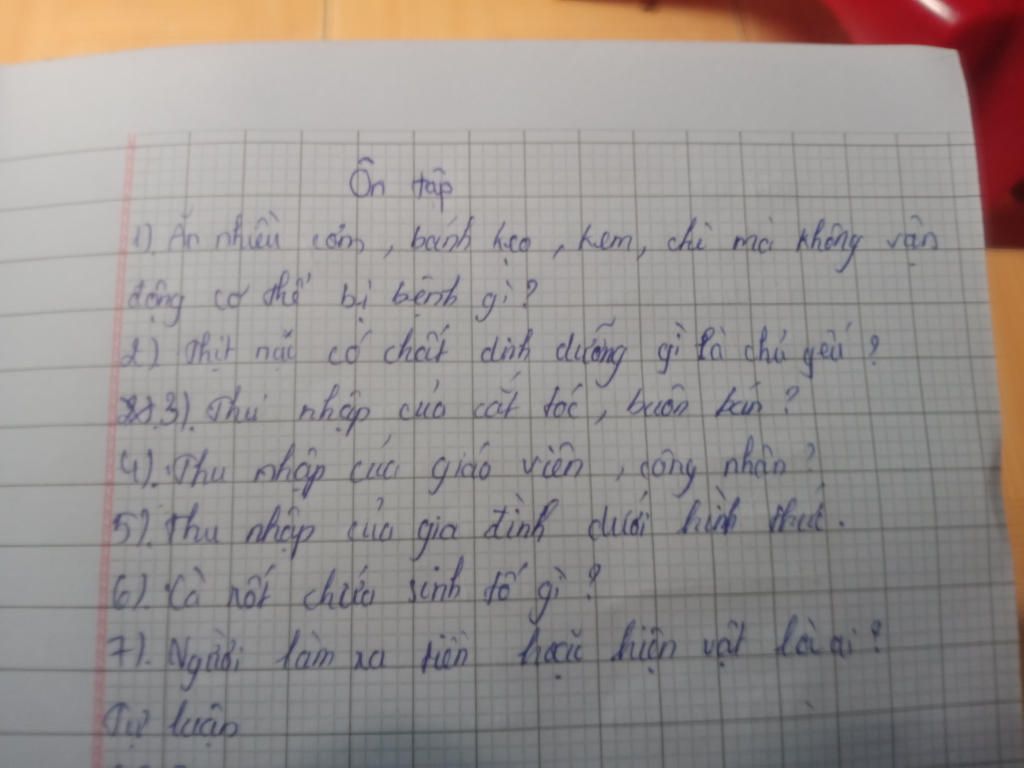 Ôn tập
1). Ăn nhiều cơm, bánh kẹo, kem, chè mà không vận
động cơ thể bị bệnh gì?
2) Thịt nạc có chất dinh dưỡng gì là chủ yếu?
3). Thu nhập của cắt tóc, buôn bán?
4). Thu nhập của giáo viên, công nhân?
5). Thu nhập của gia đình dưới hình thức.
6). Cà rốt chứa sinh tố gì?
7). Người làm ra tiền hoặc hiện vật là ai?
Tự luận